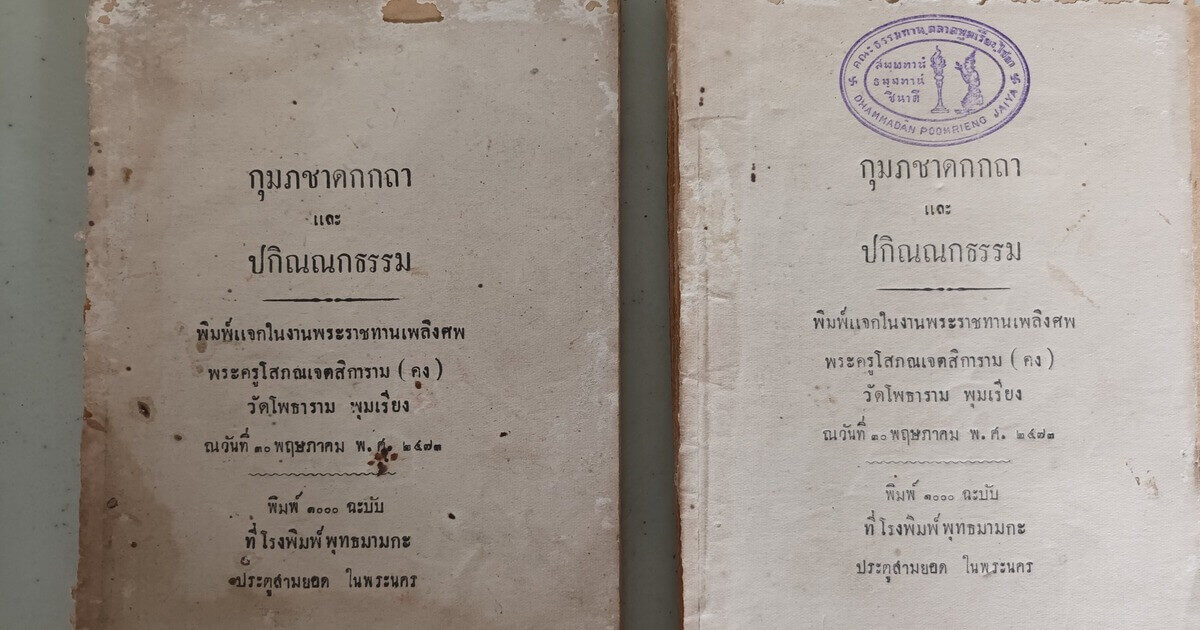 กุมภชาดกกถา
และ
ปกิณณกธรรม
พิมพ์แจกในงานพระราชทานเพลิงศพ
พระครูโสภณเจตสิการาม (คง)
วัดโพธาราม พุมเรียง
ณวันที่ ๓๐ พฤษภาคม พ.ศ. ๒๔๗๓
พิมพ์ ๑๐๐๐ ฉะบับ
ที่โรงพิมพ์พุทธมามกะ
ประตูสามยอด ในพระนคร
คณะธรรมทาน ตลาดพุมเรียง ไชยา
สพฺพทานํ
ธมฺมทานํ
ชินาติ
DHAMMADĀN POOMRIENG JAIYA
กุมภชาดกกถา
และ
ปกิณณกธรรม
พิมพ์แจกในงานพระราชทานเพลิงศพ
พระครูโสภณเจตสิการาม (คง)
วัดโพธาราม พุมเรียง
ณวันที่ ๓๐ พฤษภาคม พ.ศ. ๒๔๗๓
พิมพ์ ๑๐๐๐ ฉะบับ
ที่โรงพิมพ์พุทธมามกะ
ประตูสามยอด ในพระนคร